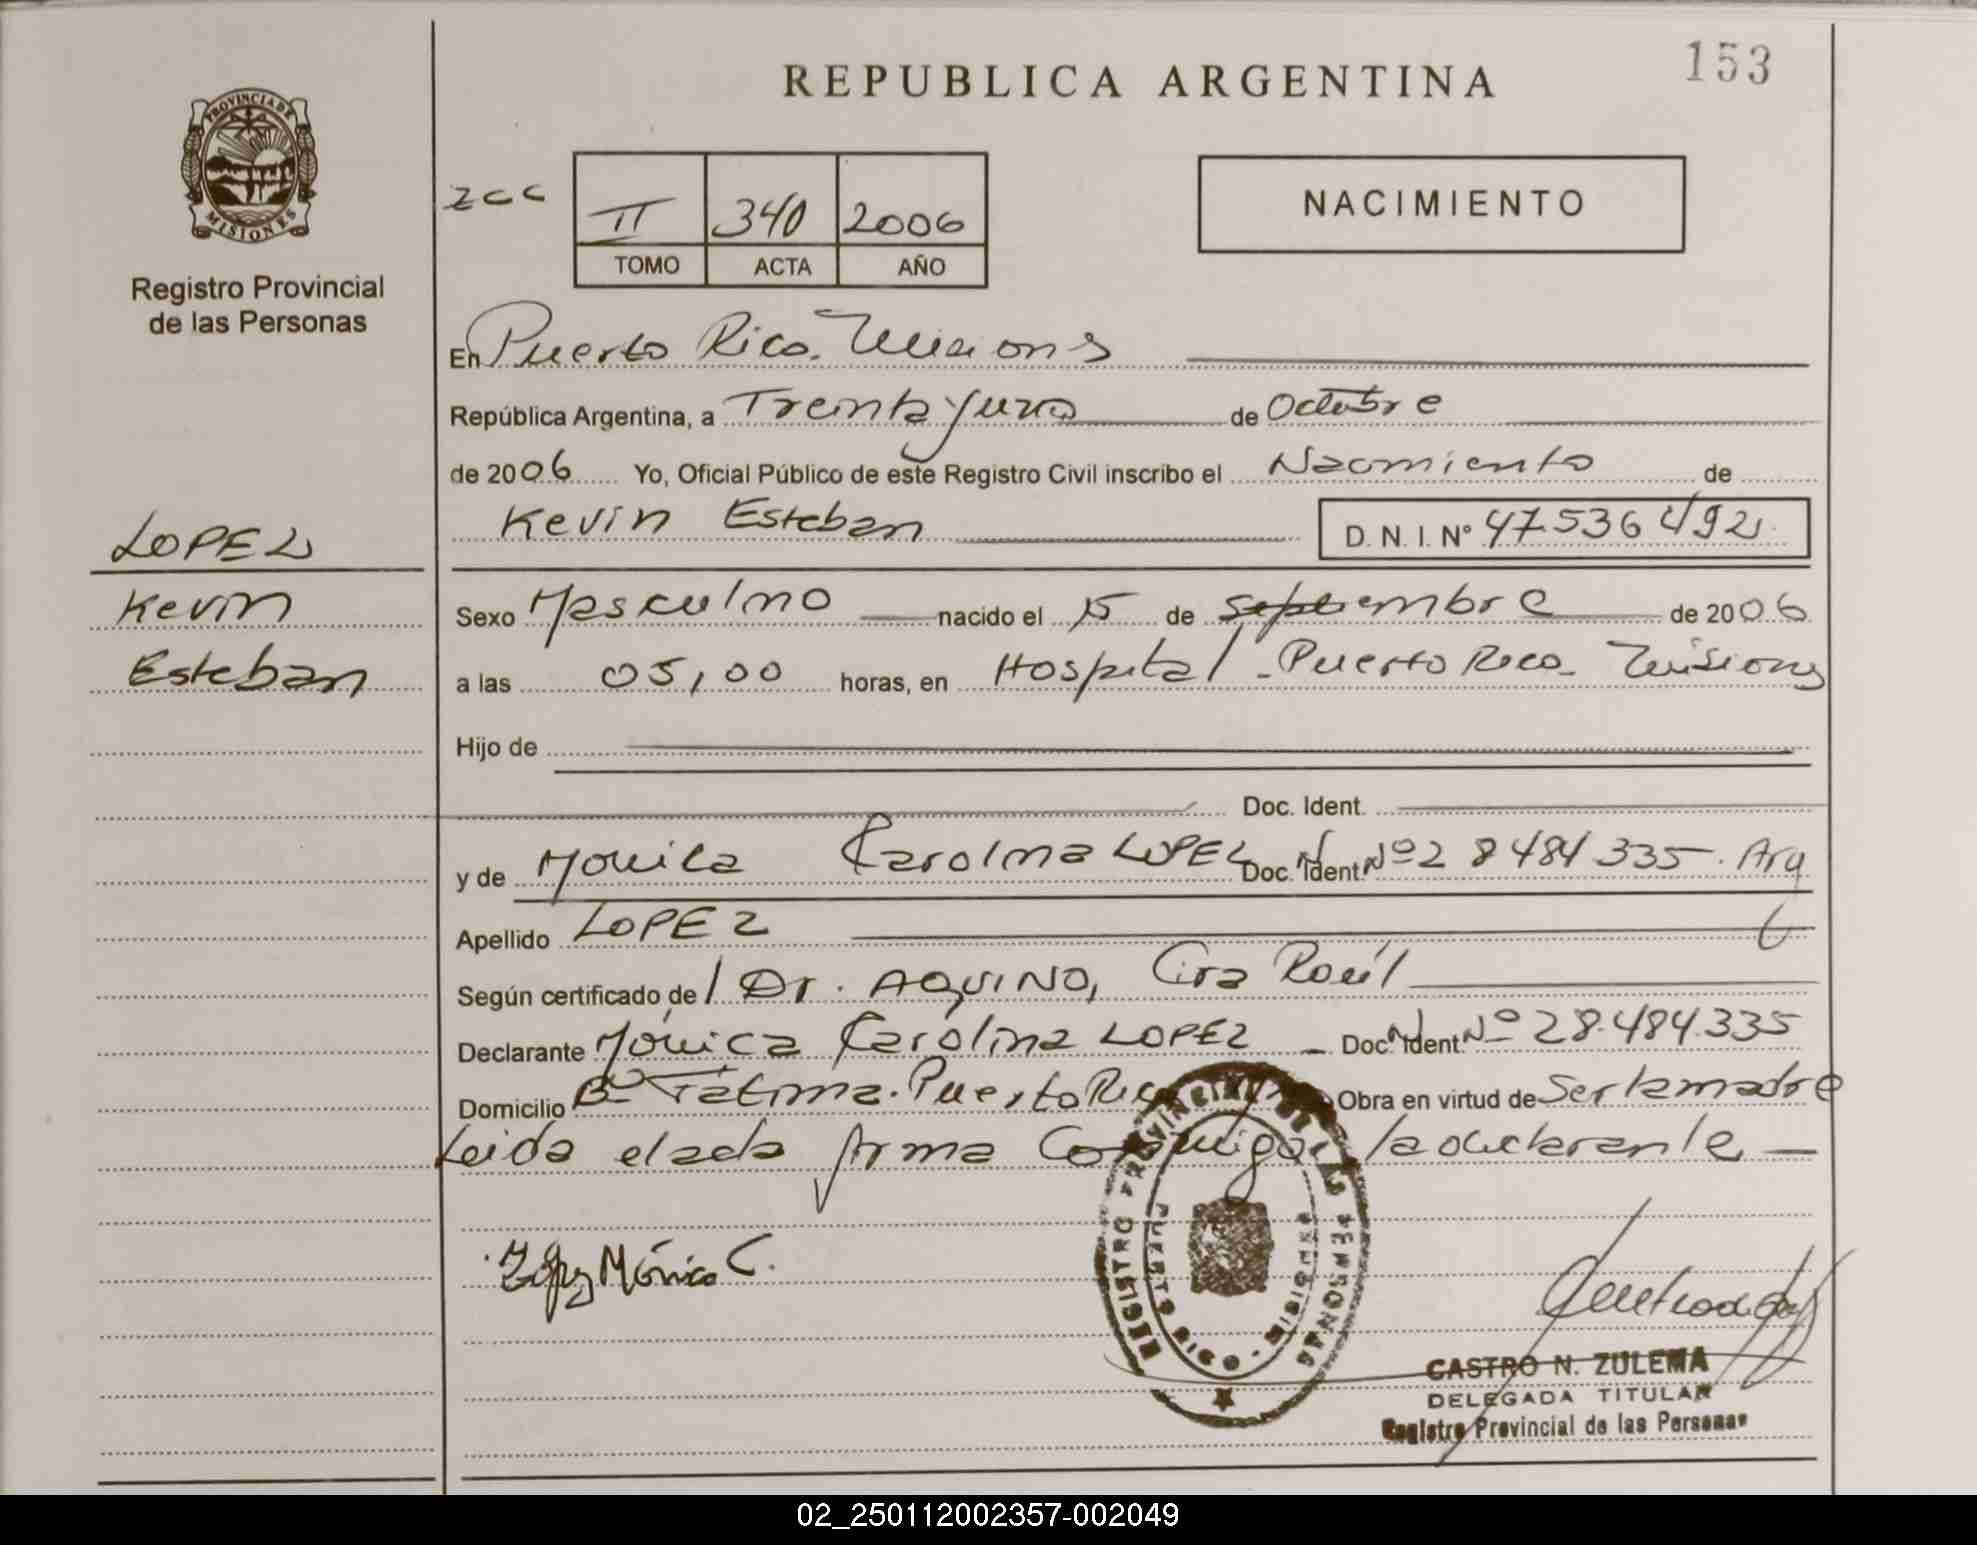 REPUBLICA ARGENTINA
153
PROVINCIA DE
MISIONES
Registro Provincial
de las Personas
zcc
II 340 2006
TOMO ACTA AÑO
NACIMIENTO
En Puerto Rico. Misiones
República Argentina, a Treinta y uno de Octubre
de 2006 Yo, Oficial Público de este Registro Civil inscribo el Nacimiento de
Kevin Esteban D. N. I. Nº 47536492
LOPEZ
Kevin
Esteban
Sexo Masculino nacido el 15 de septiembre de 2006
a las 05,00 horas, en Hospital - Puerto Rico - Misiones
Hijo de
Doc. Ident.
y de Mónica Carolina LOPEZ Doc. Ident. Nº 28484335. Arg
Apellido LOPEZ
Según certificado de / Dr. AQUINO, Raúl
Declarante Mónica Carolina LOPEZ - Doc. Ident. Nº 28.484.335
Domicilio Bº Fátima. Puerto Rico Obra en virtud de Ser la madre
Leida el acta firma Conmigo la declarante —
López Mónica C.
REGISTRO PROVINCIAL DE LAS PERSONAS
PUERTO RICO - MISIONES
CASTRO N. ZULEMA
DELEGADA TITULAR
Registro Provincial de las Personas
02_250112002357-002049